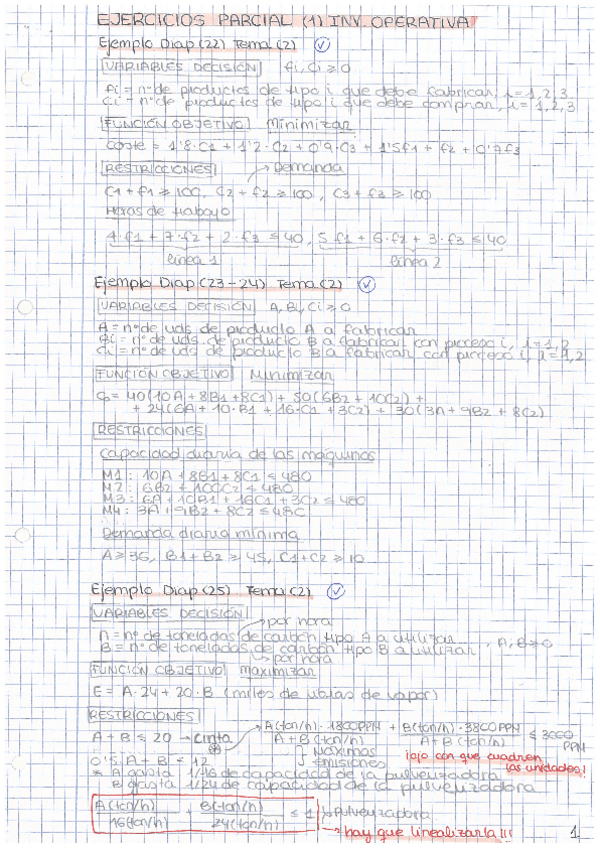 EJERCICIOS PARCIAL (1) INV. OPERATIVA
Ejemplo Diap (22) Tema (2)
VARIABLES DECISIÓN fi, ci ≥ 0
fi = nº de productos de tipo i que debe fabricar, i = 1, 2, 3
ci = nº de productos de tipo i que debe comprar, i = 1, 2, 3
FUNCIÓN OBJETIVO Minimizar
coste = 1'8·C1 + 1'2·C2 + 0'9·C3 + 1'5f1 + f2 + 0'7f3
RESTRICCIONES → Demanda
C1 + f1 ≥ 100, C2 + f2 ≥ 100, C3 + f3 ≥ 100
Horas de trabajo
4·f1 + 7·f2 + 2·f3 ≤ 40, 5f1 + 6·f2 + 3·f3 ≤ 40
línea 1 línea 2
Ejemplo Diap (23-24) Tema (2)
VARIABLES DECISIÓN A, Bi, Ci ≥ 0
A = nº de uds. de producto A a fabricar
Bi = nº de uds. de producto B a fabricar con proceso i, i = 1, 2
Ci = nº de uds de producto B a fabricar con proceso i, i = 1, 2
FUNCIÓN OBJETIVO Minimizar
C = 40(10A + 8B1 + 8C1) + 50(6B2 + 10C2) +
+ 24(6A + 10·B1 + 16·C1 + 3C2) + 30(3A + 9B2 + 8C2)
RESTRICCIONES
Capacidad diaria de las máquinas
M1: 10A + 8B1 + 8C1 ≤ 480
M2: 6B2 + 10C2 ≤ 480
M3: 6A + 10B1 + 16C1 + 3C2 ≤ 480
M4: 3A + 9B2 + 8C2 ≤ 480
Demanda diaria mínima
A ≥ 36, B1 + B2 ≥ 45, C1 + C2 ≥ 10
Ejemplo Diap (25) Tema (2)
VARIABLES DECISIÓN → por hora
A = nº de toneladas de carbón tipo A a utilizar
B = nº de toneladas de carbón tipo B a utilizar, A, B ≥ 0
→ por hora
FUNCIÓN OBJETIVO maximizar
E = A·24 + 20·B (miles de libras de vapor)
RESTRICCIONES
A(ton/h)·1800PPM + B(ton/h)·3800PPM ≤ 3000 PPM
A + B (ton/h) A + B (ton/h)
A + B ≤ 20 → cinta
0'5·A + B ≤ 12 Máximos emisiones
¡ojo con que cuadren las unidades!
* A gasta 1/16 de capacidad de la pulverizadora
B gasta 1/24 de capacidad de la pulverizadora
A(ton/h) + B(ton/h) ≤ 1 → Pulverizadora
16(ton/h) 24(ton/h)
→ hay que linealizarla!!!
1